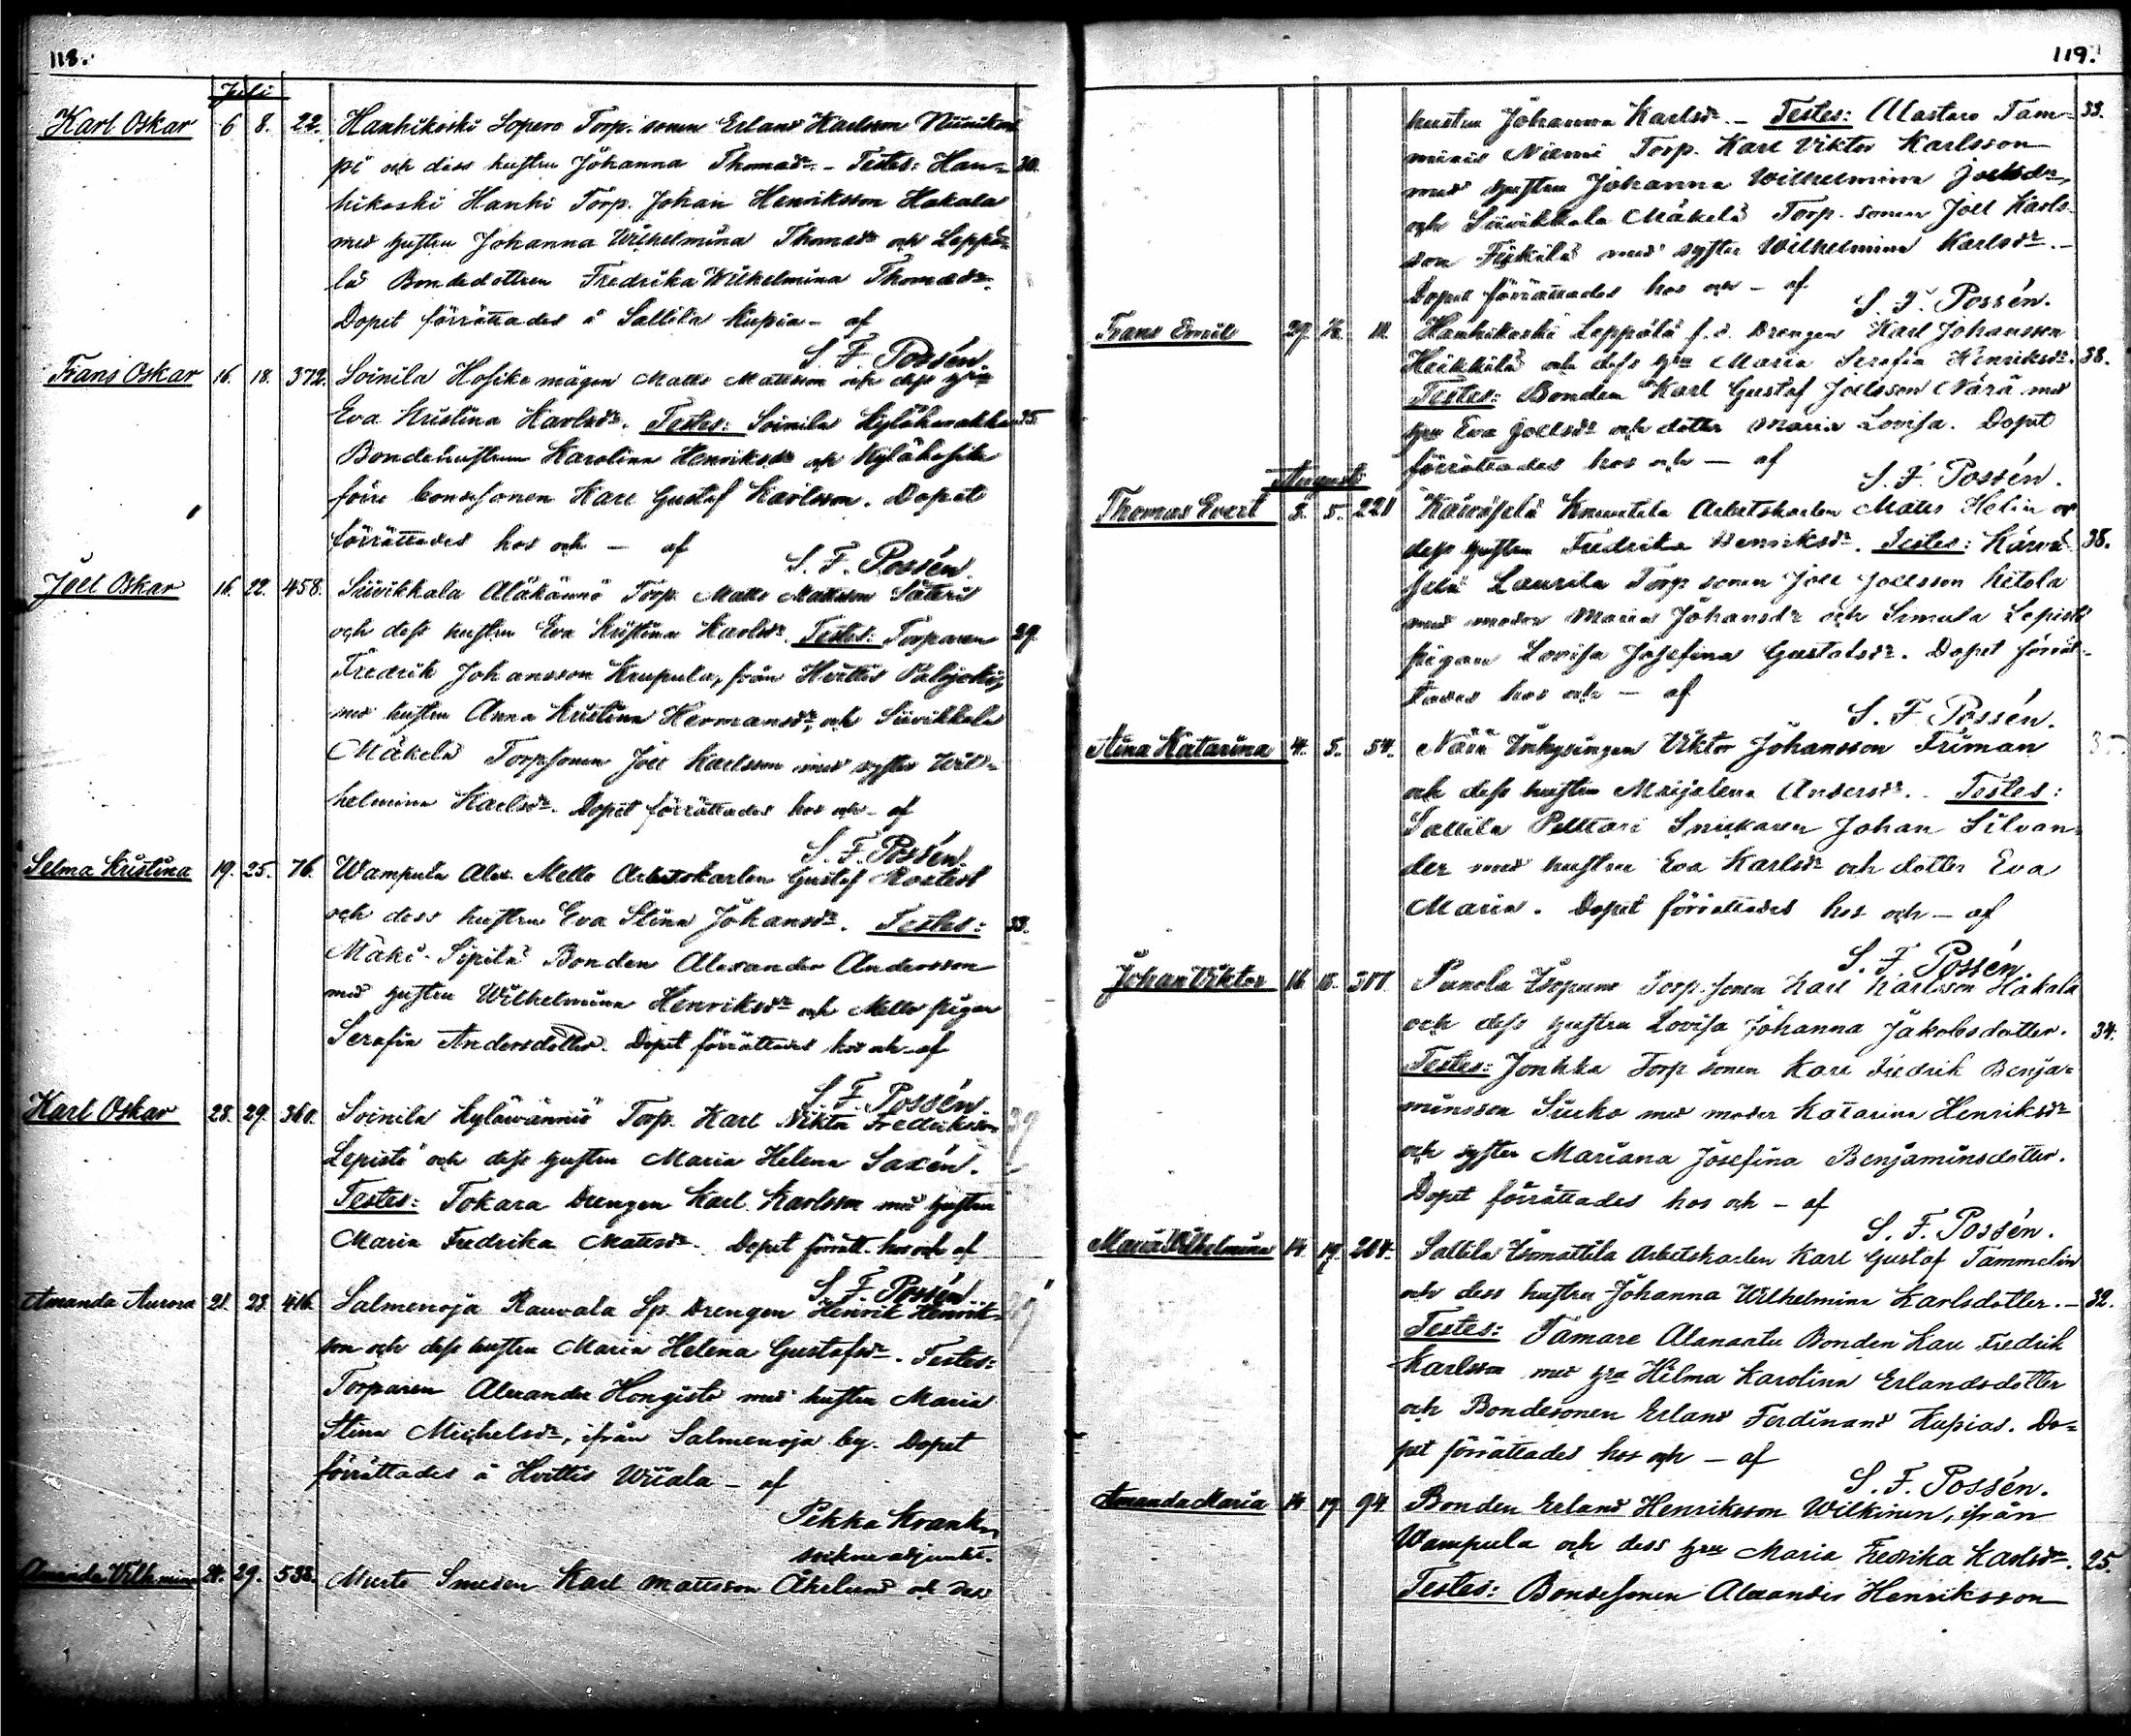 118.
Juli
Karl Oskar 6 8. 22. Hanhikoski Sopero Torp. sonen Erland Karlsson Niinikos
pi och dess hustru Johanna Thomasdr. - Testes: Han= 30.
hikoski Hanhi Torp. Johan Henriksson Hakala
med hustru Johanna Wilhelmina Thomasdr och Leppä=
lä Bondedottren Fredrika Wilhelmina Thomasdr.
Dopet förrättades å Sallila Kupia - af
S. F. Possén.
Frans Oskar 16. 18. 372. Soinila Hosike mågen Matts Mattsson och dess hru
Eva Kristina Karlsdr. Testes: Soinila 35
Bondehustrun Karolina Henriksdr och
förre bondesonen Karl Gustaf Karlsson. Dopet
förrättades hos och - af
S. F. Possén.
Joel Oskar 16. 22. 458. Siivikkala Alakännö Torp. Matts Mattsson Säteri
och dess hustru Eva Kristina Karlsdr. Testes: Torparen 29.
Fredrik Johansson Krupula, från Hvittis
med hustru Anna Kristina Hermansdr, och Siivikkala
Mäkelä Torpsonen Joel Karlsson med syster Wil=
helmina Karlsdr. Dopet förrättades hos och - af
S. F. Possén.
Selma Kristina 19. 25. 76. Wampula Ala Mello Arbetskarlen Gustaf Rostedt
och dess hustru Eva Stina Johansdr. Testes: 33.
Mäki-Sipilä Bonden Alexander Andersson
med hustru Wilhelmina Henriksdr och Mello pigan
Serafia Andersdotter. Dopet förrättades hos och - af
S. F. Possén.
Karl Oskar 28. 29. 360. Soinila Kylävännió Torp. Karl Nikta Fredriksson 29
Lepistö och dess hustru Maria Helena Saxén.
Testes: Tokara Drengen Karl Karlsson med hustru
Maria Fredrika Mattsdr. Dopet förrätt. hos och af
S. F. Possén
Amanda Aurora 21. 23. 416. Salmenoja Rauvala Sp. Drengen Henrik Henrik= 29
son och dess hustru Maria Helena Gustafsdr. Testes:
Torparen Alexander Hongisto med hustru Maria
Stina Michelsdr, ifrån Salmenoja by. Dopet
förrättades å Hvittis Wiiala - af
Pekka Krank
sockneadjunkt.
Amanda Vilhmina 24. 29. 532. Murto Smeden Karl Mattsson Åkelund och dess
119.
hustru Johanna Karlsdr. - Testes: Alastaro Tam= 33.
miais Niemi Torp. Karl Viktor Karlsson
med hustru Johanna Wilhelmina Joelsdr,
och Siivikkala Mäkelä Torp. sonen Joel Karls-
son med syster Wilhelmina Karlsdr.-
Dopet förrättades hos och - af
S. F. Possén.
Frans Emil 29. Hanhikoski Leppälä f. d. Drengen Karl Johansson
Heikkilä och dess hru Maria Serafia Henriksdr. 38.
Testes: Bonden Karl Gustaf Joelsson Närä med
hru Eva Joelsdr och dotter Maria Lovisa. Dopet
förrättades hos och - af
S. F. Possén.
Augusti
Thomas Evert 3. 5. 221 Käräsälä Arbetskarlen Matts Helin och
dess hustru Fredrika Henriksdr. Testes: 38.
Laurila Torp. sonen Joel Joelsson
med moder Maria Johansdr och Simula Lepistö
pigan Lovisa Josefina Gustafsdr. Dopet förrät-
tades hos och - af
S. F. Possén.
Aina Katarina 4. 5. 54. Närä Inhysingen Viktor Johansson Friman
och dess hustru Maijalena Andersdr. Testes:
Sallila Pelttari Snickaren Johan Silvan=
der med hustru Eva Karlsdr och dotter Eva
Maria. Dopet förrättades hos och - af
S. F. Possén.
Johan Viktor 16. 18. Punola Torp. sonen Karl Karlsson Hakala
och dess hustru Lovisa Johanna Jakobsdotter. 34.
Testes: Jonkka Torp. sonen Karl Fredrik Benja=
minsson Suko med moder Katarina Henriksdr
och syster Mariana Josefina Benjaminsdotter.
Dopet förrättades hos och - af
S. F. Possén.
Maria Wilhelmina 14. 19. 264. Sallila Isomattila Arbetskarlen Karl Gustaf Tammelin
och dess hustru Johanna Wilhelmina Karlsdotter. - 32.
Testes: Tamare Alanaatu Bonden Karl Fredrik
Karlsson med hru Hilma Karolina Erlandsdotter
och Bondesonen Erland Ferdinand Kupias. Do=
pet förrättades hos och - af
S. F. Possén.
Amanda Maria 14 19. 94. Bonden Erland Henriksson Wilkinen, ifrån
Wampula och dess hru Maria Fredrika Karlsdr. 25.
Testes: Bondesonen Alexander Henriksson